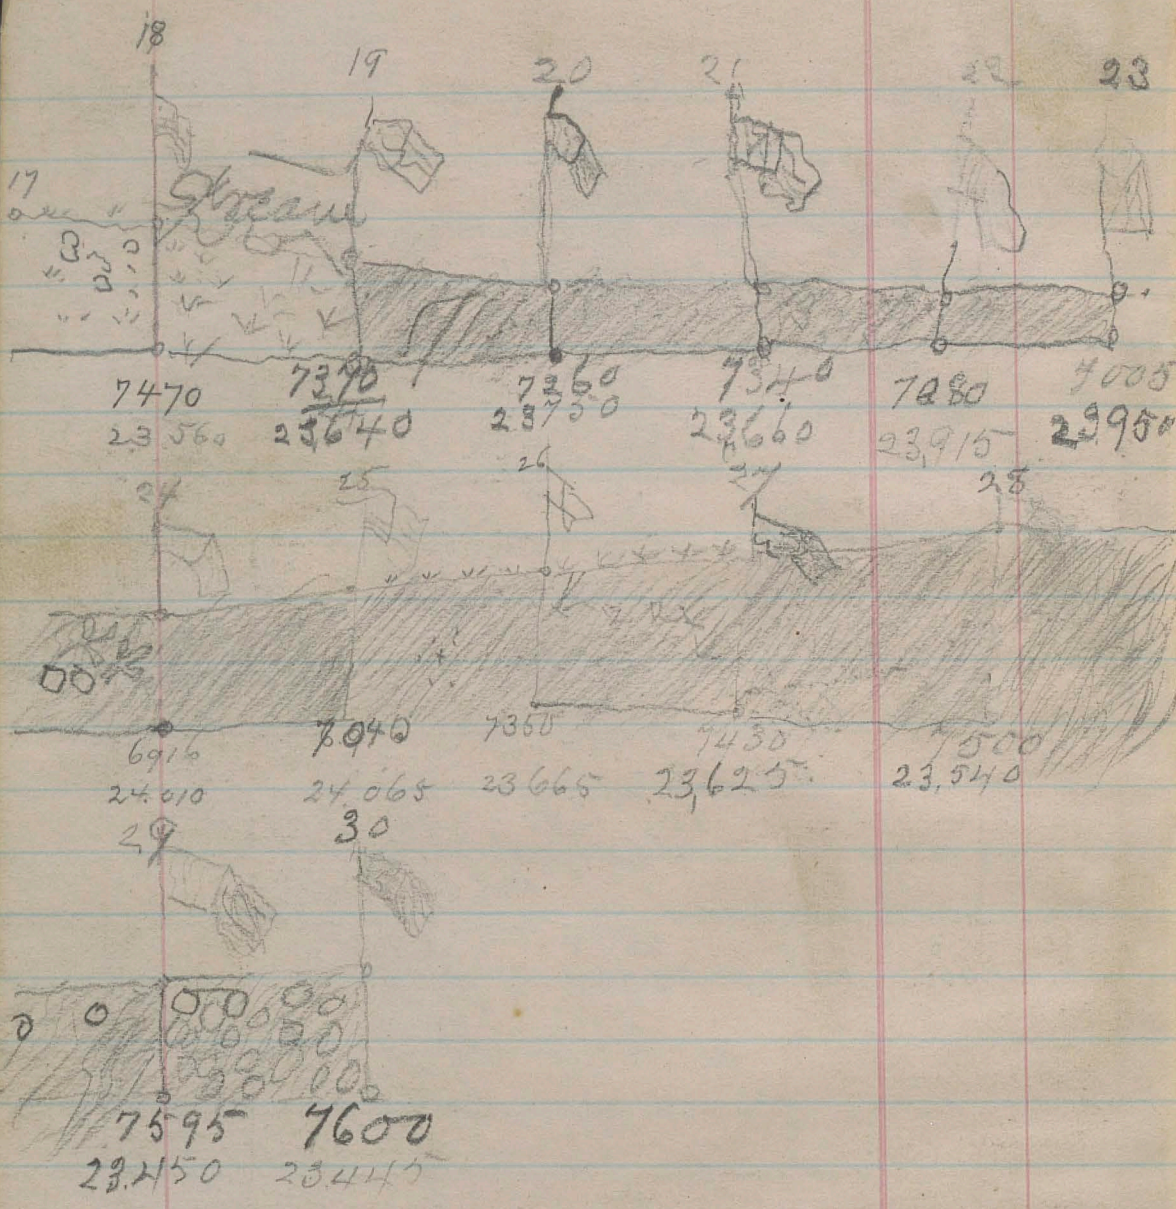 18 19 20 21 22 23
17 Stream
7470 7370 7260 7340 7280 7005
23.560 23,640 23750 23,660 23,915 23950
24 25 26 27 28
6916 7040 7350 7430 7500
24.010 24.065 23665 23,625 23,540
29 30
7595 7600
23.450 23.445